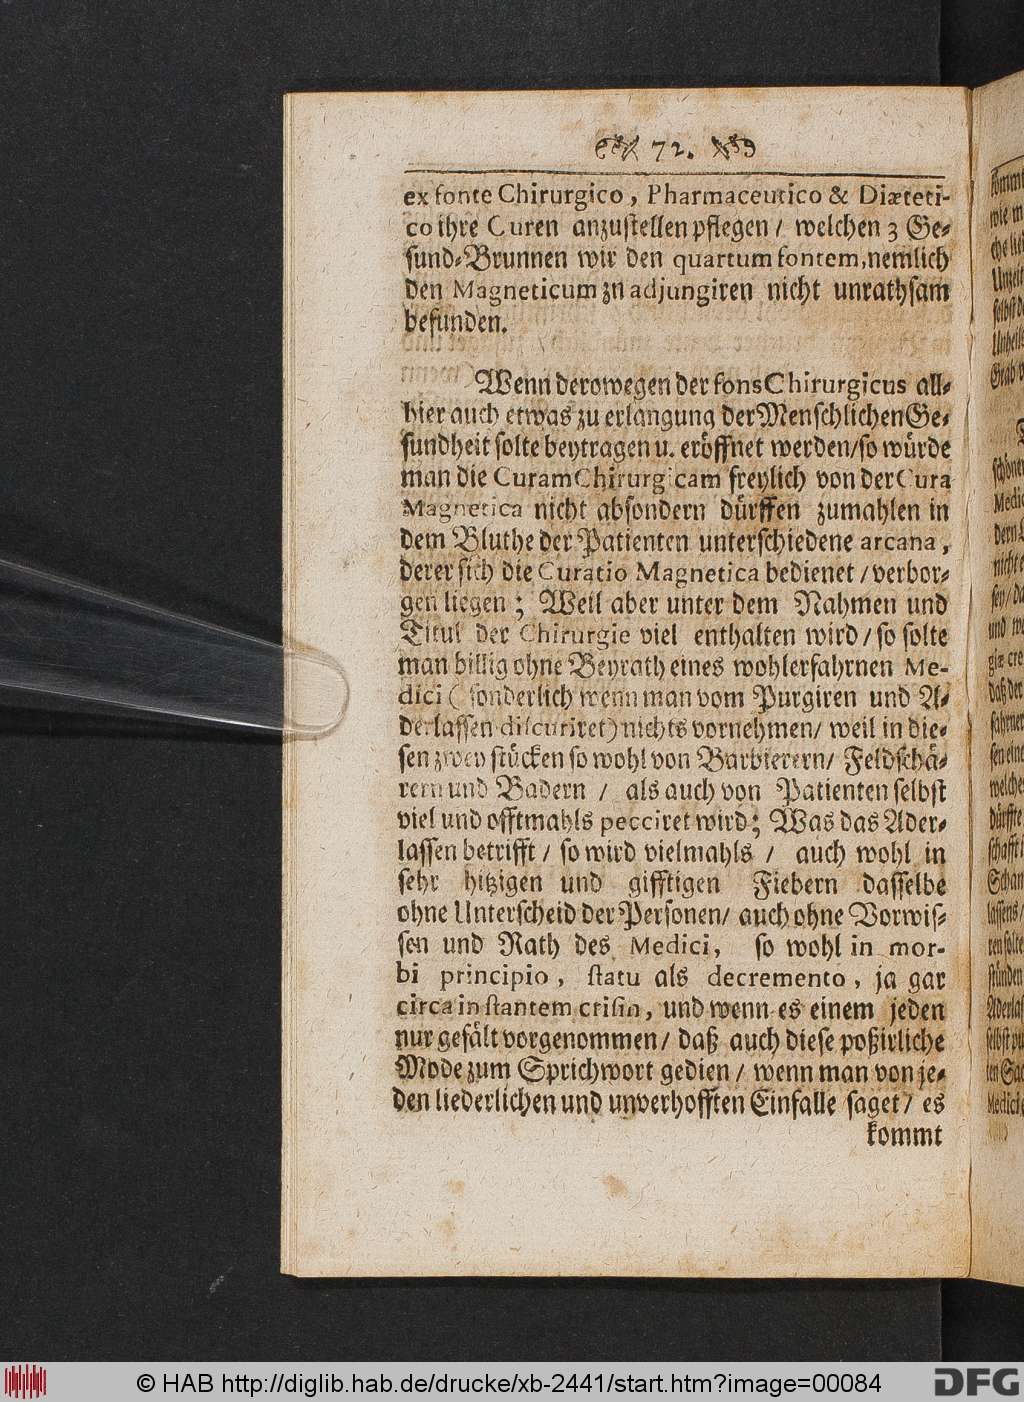 72.
ex fonte Chirurgico, Pharmaceutico & Diæteti-
co ihre Curen anzustellen pflegen / welchen 3 Ge-
sund-Brunnen wir den quartum fontem, nemlich
den Magneticum zu adjungiren nicht unrathsam
befunden.
Wenn derowegen der fons Chirurgicus all-
hier auch etwas zu erlangung der Menschlichen Ge-
sundheit solte beytragen u. eröffnet werden / so würde
man die Curam Chirurgicam freylich von der Cura
Magnetica nicht absondern dürffen zumahlen in
dem Bluthe der Patienten unterschiedene arcana,
derer sich die Curatio Magnetica bedienet / verbor-
gen liegen; Weil aber unter dem Nahmen und
Titul der Chirurgie viel enthalten wird / so solte
man billig ohne Beyrath eines wohlerfahrnen Me-
dici (sonderlich wenn man vom Purgiren und A-
derlassen discuriret) nichts vornehmen / weil in die-
sen zwey stücken so wohl von Barbierern / Feldschä-
rern und Badern / als auch von Patienten selbst
viel und offtmahls pecciret wird; Was das Ader-
lassen betrifft / so wird vielmahls / auch wohl in
sehr hitzigen und gifftigen Fiebern dasselbe
ohne Unterscheid der Personen / auch ohne Vorwis-
sen und Rath des Medici, so wohl in mor-
bi principio, statu als decremento, ja gar
circa instantem crisin, und wenn es einem jeden
nur gefält vorgenommen / daß auch diese poßirliche
Mode zum Sprichwort gedien / wenn man von je-
den liederlichen und unverhofften Einfalle saget / es
kommt
© HAB http://diglib.hab.de/drucke/xb-2441/start.htm?image=00084
DFG